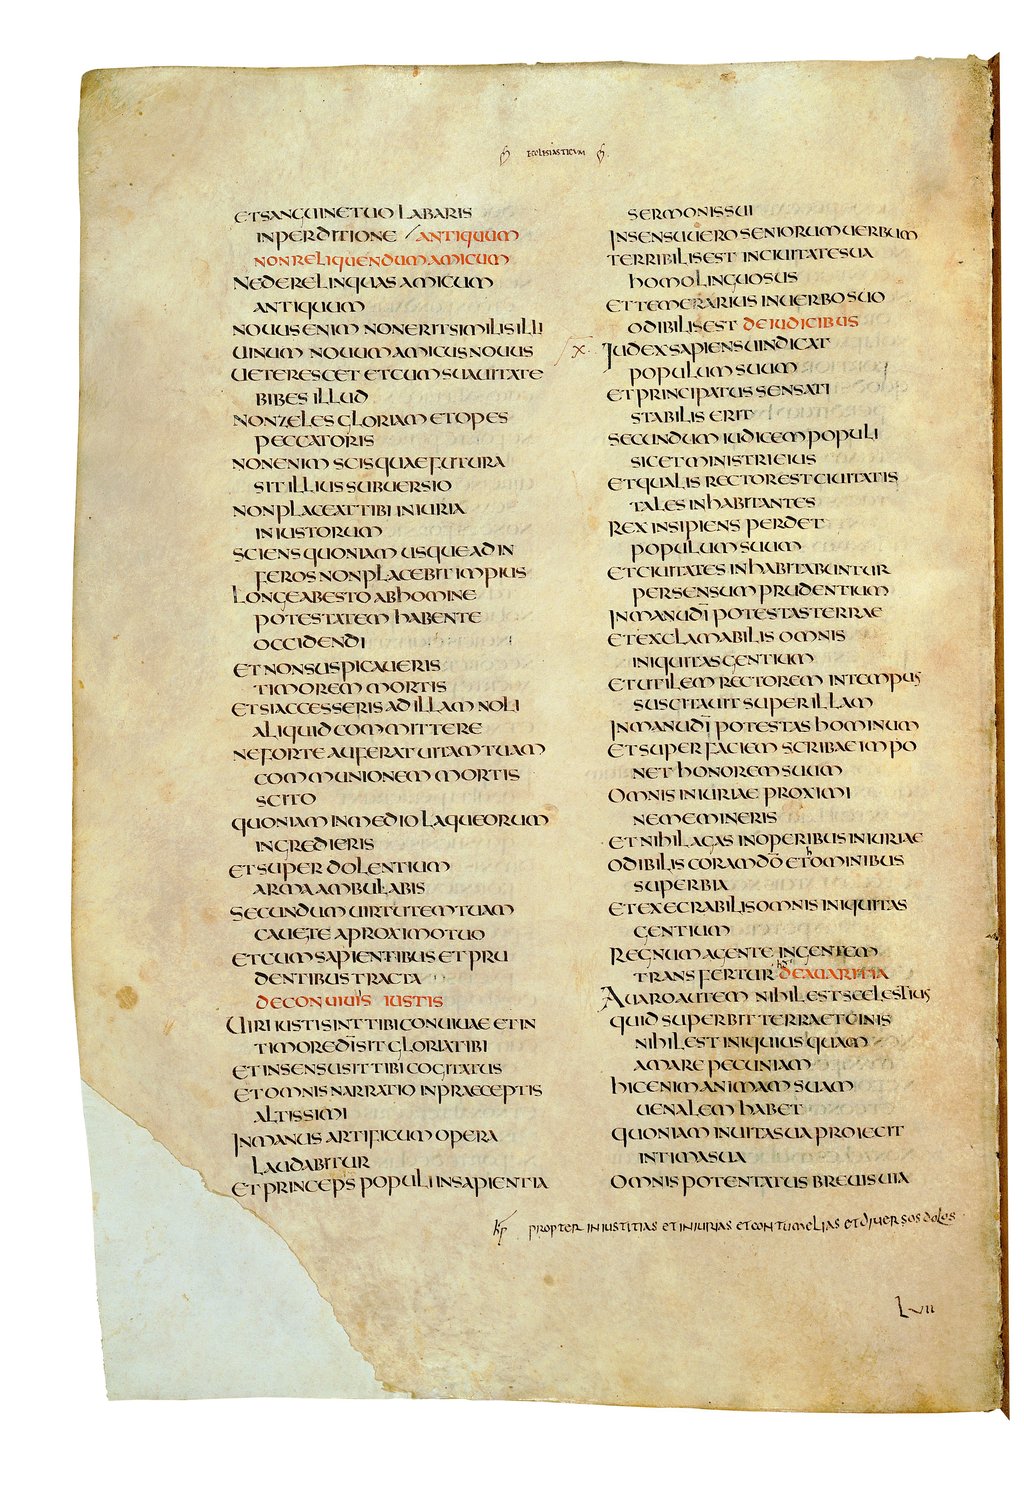 ECCLESIASTICUM
ETSANGUINETUO LABARIS
INPERDITIONE ANTIQUUM
NONRELIQUENDUMAMICUM
NEDERELINQUASAMICUM
ANTIQUUM
NOUUSENIM NONERITSIMILISILLI
UINUM NOUUMAMICUSNOUUS
UETERESCET ETCUMSUAUITATE
BIBES ILLUD
NONZELES GLORIAM ETOPES
PECCATORIS
NONENIM SCISQUAEFUTURA
SITILLIUSSUBUERSIO
NONPLACEATTIBI INIURIA
INIUSTORUM
SCIENS QUONIAM USQUEADIN
FEROS NONPLACEBITIMPIUS
LONGEABESTO ABHOMINE
POTESTATEM HABENTE
OCCIDENDI
ETNONSUSPICAUERIS
TIMOREM MORTIS
ETSIACCESSERISADILLAM NOLI
ALIQUIDCOMMITTERE
NEFORTE AUFERATUITAMTUAM
COMMUNIONEM MORTIS
SCITO
QUONIAM INMEDIO LAQUEORUM
INGREDIERIS
ETSUPERDOLENTIUM
ARMAAMBULABIS
SECUNDUMUIRTUTEMTUAM
CAUETE APROXIMOTUO
ETCUMSAPIENTIBUS ETPRU
DENTIBUSTRACTA
DECONUIUIS IUSTIS
UIRI IUSTISINTTIBICONUIUAE ETIN
TIMOREDĪSIT GLORIATIBI
ETINSENSUSITTIBI COGITATUS
ETOMNIS NARRATIO INPRAECEPTIS
ALTISSIMI
INMANUS ARTIFICUM OPERA
LAUDABITUR
ETPRINCEPS POPULI INSAPIENTIA
SERMONISSUI
INSENSUUERO SENIORUMUERBUM
TERRIBILISEST INCIUITATESUA
HOMOLINGUOSUS
ETTEMERARIUS INUERBOSUO
ODIBILISEST DEIUDICIBUS
IUDEXSAPIENSUINDICAT
POPULUMSUUM
ETPRINCIPATUS SENSATI
STABILIS ERIT
SECUNDUM IUDICEMPOPULI
SICETMINISTRIEIUS
ETQUALIS RECTORESTCIUITATIS
TALES INHABITANTES
REX INSIPIENS PERDET
POPULUMSUUM
ETCIUITATES INHABITABUNTUR
PERSENSUM PRUDENTIUM
INMANUDĪ POTESTASTERRAE
ETEXCLAMABILIS OMNIS
INIQUITASGENTIUM
ETUTILEM RECTOREM INTEMPUS
SUSCITAUIT SUPERILLAM
INMANUDĪ POTESTAS HOMINUM
ETSUPER FACIEM SCRIBAEIMPO
NET HONOREMSUUM
OMNIS INIURIAE PROXIMI
NEMEMINERIS
ETNIHILAGAS INOPERIBUSINIURIAE
ODIBILIS CORAMDŌ ETHOMINIBUS
SUPERBIA
ETEXECRABILISOMNIS INIQUITAS
GENTIUM
REGNUMAGENTE INGENTEM
TRANSFERTUR DEAUARITIA
AUAROAUTEM NIHILESTSCELESTIUS
QUIDSUPERBIT TERRAETCINIS
NIHILEST INIQUIUSQUAM
AMARE PECUNIAM
HICENIMANIMAMSUAM
UENALEM HABET
QUONIAM INUITASUAPROIECIT
INTIMASUA
OMNISPOTENTATUS BREUISUITA
PROPTER INIUSTITIAS ETINIURIAS ETCONTUMELIAS ETDIUERSOSDOLOS
LVII